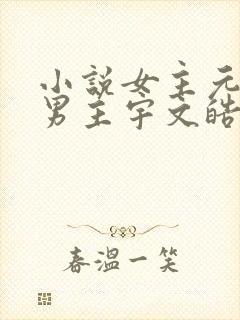 小説女主元
男主宇文皓
春溫一笑